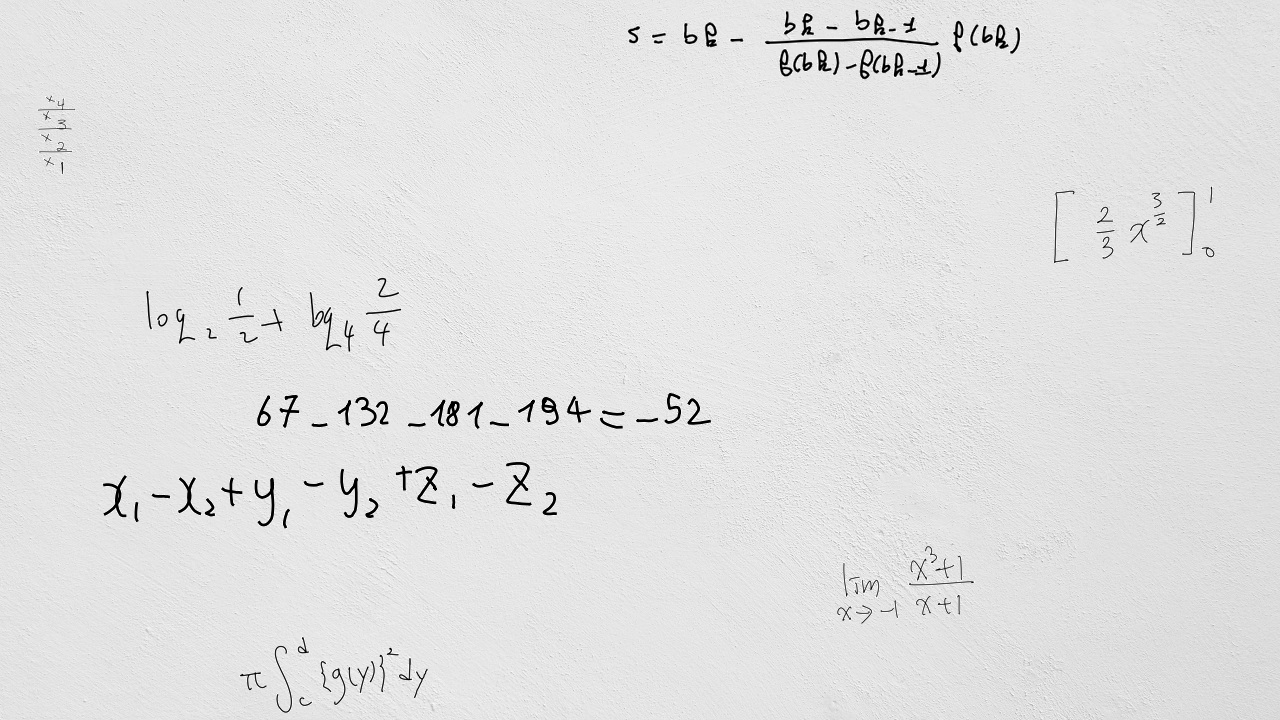 s = b_k - \frac{b_k - b_{k-1}}{f(b_k) - f(b_{k-1})} f(b_k)
\frac{\frac{x_4}{x_3}}{\frac{x_2}{x_1}}
\left[ \frac{2}{3} x^{\frac{3}{2}} \right]_0^1
\log_2 \frac{1}{2} + \log_4 \frac{2}{4}
67 - 132 - 181 - 194 = -52
x_1 - x_2 + y_1 - y_2 + z_1 - z_2
\lim_{x \to -1} \frac{x^3+1}{x+1}
\pi \int_c^d \{g(y)\}^2 dy